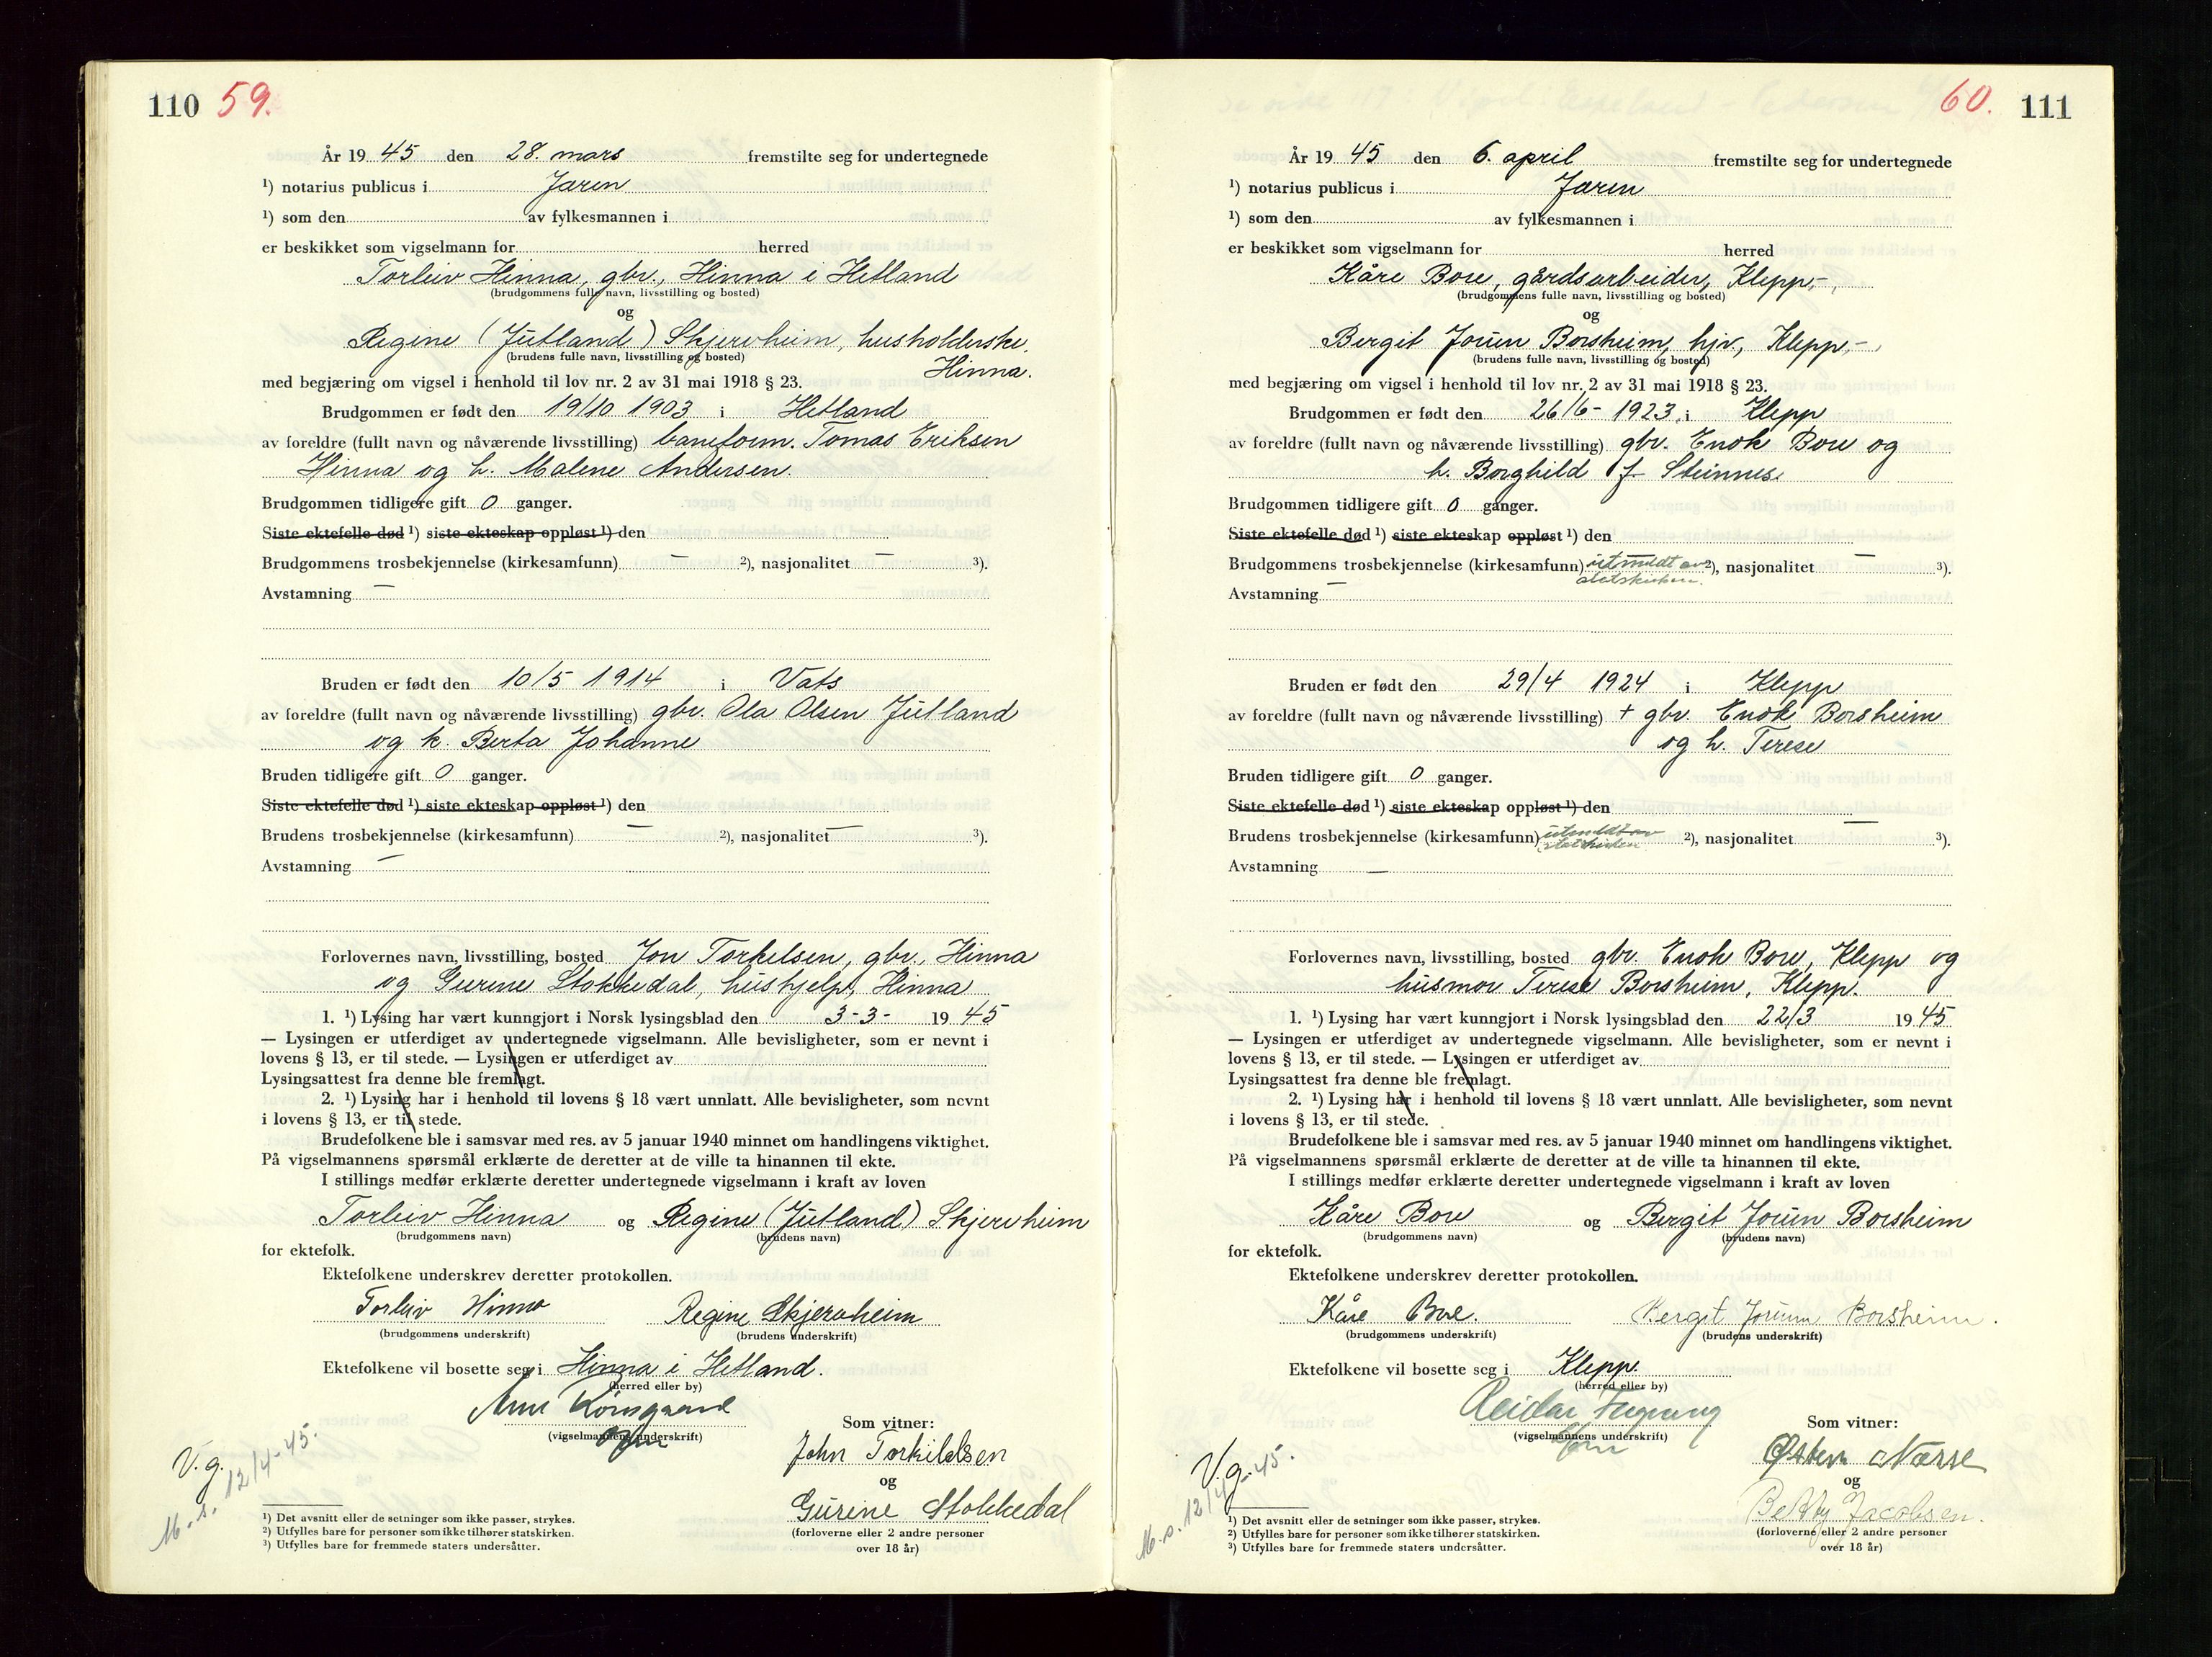 110 59.
År 1945 den 28. mars fremstilte seg for undertegnede
¹) notarius publicus i Jæren
¹) som den av fylkesmannen i
er beskikket som vigselmann for herred
Torleiv Hinna, gbr., Hinna i Hetland
(brudgommens fulle navn, livsstilling og bosted)
og
Regine (Jutland) Skjerveheim, husholderske,
(brudens fulle navn, livsstilling og bosted)
Hinna.
med begjæring om vigsel i henhold til lov nr. 2 av 31 mai 1918 § 23.
Brudgommen er født den 19/10 1903 i Hetland
av foreldre (fullt navn og nåværende livsstilling) baneform. Tomas Eriksen
Hinna og h. Malene Andersen.
Brudgommen tidligere gift 0 ganger.
Siste ektefelle død ¹) siste ekteskap oppløst ¹) den
Brudgommens trosbekjennelse (kirkesamfunn) — ²), nasjonalitet — ³).
Avstamning —
Bruden er født den 10/5 1914 i Vats
av foreldre (fullt navn og nåværende livsstilling) gbr. Ola Olsen Jutland
og h. Berta Johanne
Bruden tidligere gift 0 ganger.
Siste ektefelle død ¹) siste ekteskap oppløst ¹) den
Brudens trosbekjennelse (kirkesamfunn) — ²), nasjonalitet — ³).
Avstamning —
Forlovernes navn, livsstilling, bosted Jon Torkelsen, gbr., Hinna
og Gurine Stokkedal, hushjelp, Hinna
1. ¹) Lysing har vært kunngjort i Norsk lysingsblad den 3-3- 1945
— Lysingen er utferdiget av undertegnede vigselmann. Alle bevisligheter, som er nevnt i
lovens § 13, er til stede. — Lysingen er utferdiget av
Lysingsattest fra denne ble fremlagt.
2. ¹) Lysing har i henhold til lovens § 18 vært unnlatt. Alle bevisligheter, som nevnt
i lovens § 13, er til stede.
Brudefolkene ble i samsvar med res. av 5 januar 1940 minnet om handlingens viktighet.
På vigselmannens spørsmål erklærte de deretter at de ville ta hinannen til ekte.
I stillings medfør erklærte deretter undertegnede vigselmann i kraft av loven
Torleiv Hinna og Regine (Jutland) Skjerveheim
(brudgommens navn) (brudens navn)
for ektefolk.
Ektefolkene underskrev deretter protokollen.
Torleiv Hinna Regine Skjerveheim
(brudgommens underskrift) (brudens underskrift)
Ektefolkene vil bosette seg i Hinna i Hetland.
(herred eller by)
(vigselmannens underskrift)
Som vitner:
John Torkildsen
og
Gurine Stokkedal
(forloverne eller 2 andre personer
over 18 år)
V.g.
M.s. 12/4-45.
¹) Det avsnitt eller de setninger som ikke passer, strykes.
²) Utfylles bare for personer som ikke tilhører statskirken.
³) Utfylles bare for fremmede staters undersåtter.
60. 111
År 1945 den 6. april fremstilte seg for undertegnede
¹) notarius publicus i Jæren
¹) som den av fylkesmannen i
er beskikket som vigselmann for herred
Kåre Bore, gårdsarbeider, Klepp,-
(brudgommens fulle navn, livsstilling og bosted)
og
Bergit Jorun Borsheim, hjv., Klepp,-
(brudens fulle navn, livsstilling og bosted)
med begjæring om vigsel i henhold til lov nr. 2 av 31 mai 1918 § 23.
Brudgommen er født den 26/6- 1923, i Klepp
av foreldre (fullt navn og nåværende livsstilling) gbr. Enok Bore og
h. Borghild f. Steinnes.
Brudgommen tidligere gift 0 ganger.
Siste ektefelle død ¹) siste ekteskap oppløst ¹) den
Brudgommens trosbekjennelse (kirkesamfunn) utmeldt av ²), nasjonalitet — ³).
statskirken.
Avstamning —
Bruden er født den 29/4 1924 i Klepp
av foreldre (fullt navn og nåværende livsstilling) + gbr. Enok Borsheim
og h. Terese
Bruden tidligere gift 0 ganger.
Siste ektefelle død ¹) siste ekteskap oppløst ¹) den
Brudens trosbekjennelse (kirkesamfunn) utmeldt av ²), nasjonalitet — ³).
statskirken
Avstamning —
Forlovernes navn, livsstilling, bosted gbr. Enok Bore, Klepp og
husmor Terese Borsheim, Klepp.
1. ¹) Lysing har vært kunngjort i Norsk lysingsblad den 22/3 1945
— Lysingen er utferdiget av undertegnede vigselmann. Alle bevisligheter, som er nevnt i
lovens § 13, er til stede. — Lysingen er utferdiget av
Lysingsattest fra denne ble fremlagt.
2. ¹) Lysing har i henhold til lovens § 18 vært unnlatt. Alle bevisligheter, som nevnt
i lovens § 13, er til stede.
Brudefolkene ble i samsvar med res. av 5 januar 1940 minnet om handlingens viktighet.
På vigselmannens spørsmål erklærte de deretter at de ville ta hinannen til ekte.
I stillings medfør erklærte deretter undertegnede vigselmann i kraft av loven
Kåre Bore og Bergit Jorun Borsheim
(brudgommens navn) (brudens navn)
for ektefolk.
Ektefolkene underskrev deretter protokollen.
Kåre Bore. Bergit Jorunn Borsheim.
(brudgommens underskrift) (brudens underskrift)
Ektefolkene vil bosette seg i Klepp.
(herred eller by)
Reidar
(vigselmannens underskrift)
Som vitner:
Østen Nærse
og
Betty Jacobsen.
(forloverne eller 2 andre personer
over 18 år)
V.g.
M.s. 12/4-45.
¹) Det avsnitt eller de setninger som ikke passer, strykes.
²) Utfylles bare for personer som ikke tilhører statskirken.
³) Utfylles bare for fremmede staters undersåtter.